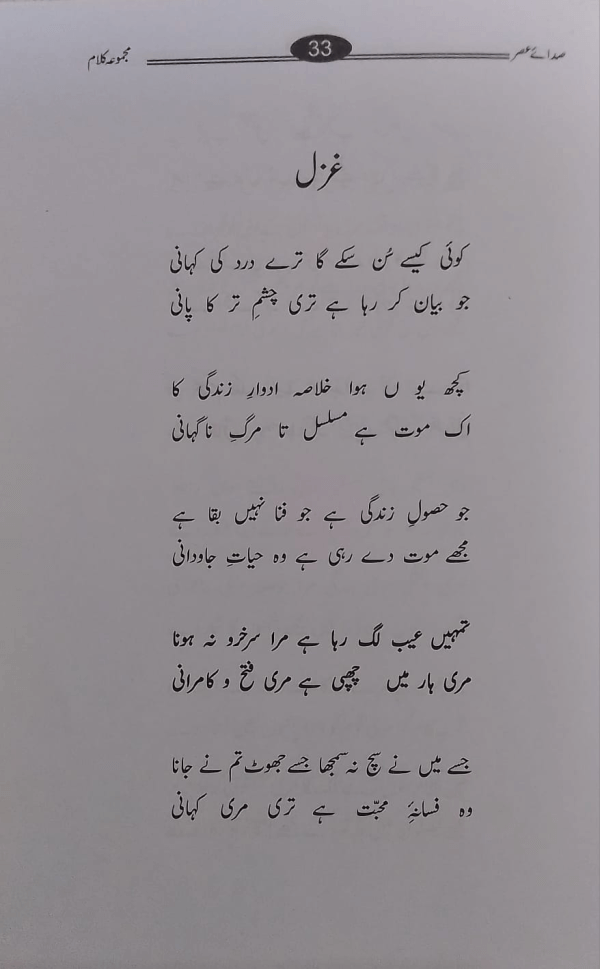 صدائے عصر
33
مجموعہ کلام
غزل
کوئی کیسے سُن سکے گا ترے درد کی کہانی
جو بیان کر رہا ہے تری چشمِ تر کا پانی
کچھ یو ں ہوا خلاصہ ادوارِ زندگی کا
اک موت ہے مسلسل تا مرگِ ناگہانی
جو حصولِ زندگی ہے جو فنا نہیں بقا ہے
مجھے موت دے رہی ہے وہ حیاتِ جاودانی
تمہیں عیب لگ رہا ہے مرا سرخرو نہ ہونا
مری ہار میں چھپی ہے مری فتح و کامرانی
جسے میں نے سچ نہ سمجھا جسے جھوٹ تم نے جانا
وہ فسانۂ محبّت ہے تری مری کہانی